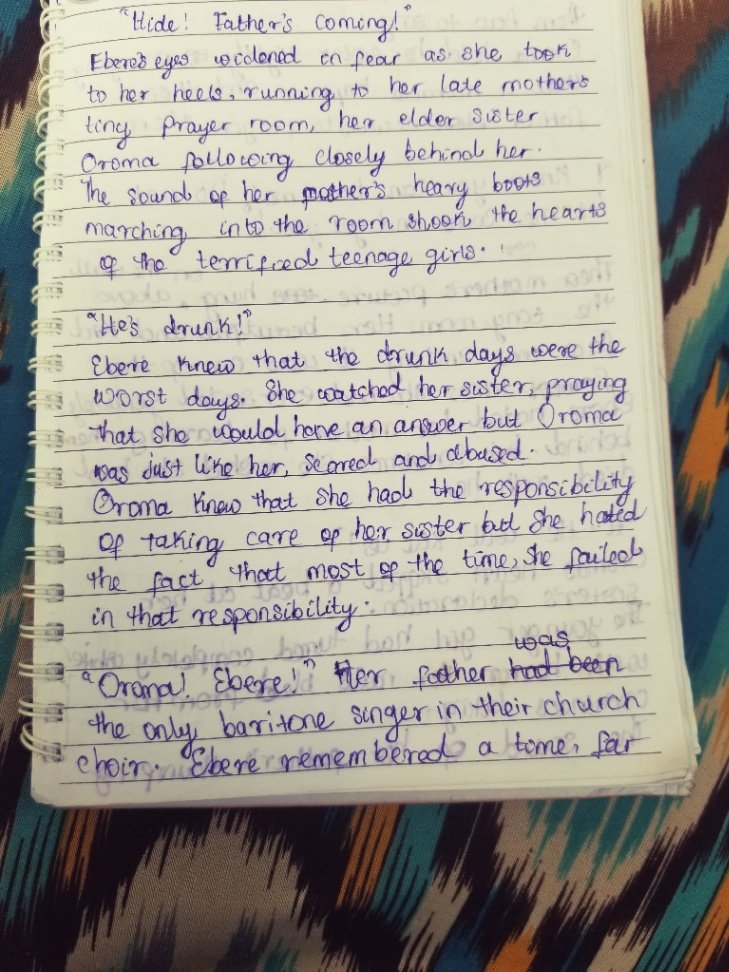 "Hide! Father's coming!"
Ebere's eyes widened in fear as she took
to her heels, running to her late mother's
tiny prayer room, her elder sister
Oroma following closely behind her.
The sound of her father's heavy boots
marching into the room shook the hearts
of the terrified teenage girls.
"He's drunk!"
Ebere knew that the drunk days were the
worst days. She watched her sister, praying
that she would have an answer but Oroma
was just like her, scared and abused.
Oroma knew that she had the responsibility
of taking care of her sister but she hated
the fact that most of the time, she failed
in that responsibility.
was
"Oroma! Ebere!" Her father had been
the only baritone singer in their church
choir. Ebere remembered a time, far